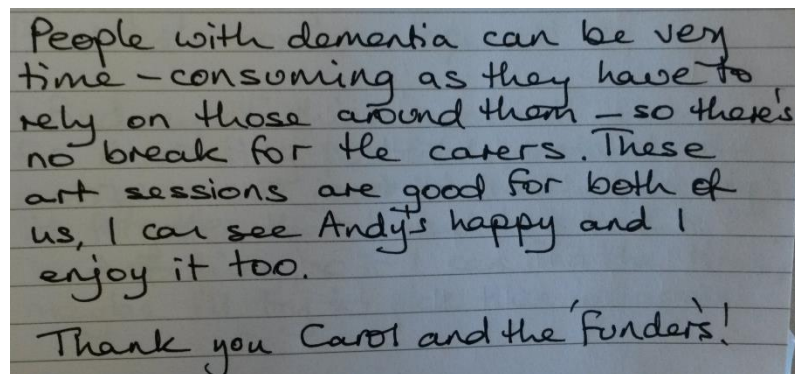 People with dementia can be very
time - consuming as they have to
rely on those around them - so there's
no break for the carers. These
art sessions are good for both of
us, I can see Andy's happy and I
enjoy it too.
Thank you Carol and the 'funders'!